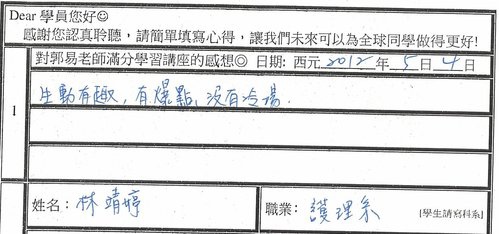 Dear 學員您好☺
感謝您認真聆聽，請簡單填寫心得，讓我們未來可以為全球同學做得更好!
對郭易老師滿分學習講座的感想◎ 日期: 西元 2012 年 5 日 4 日
1
生動有趣，有爆點，沒有冷場.
姓名: 林靖婷 職業: 護理系 [學生請寫科系]